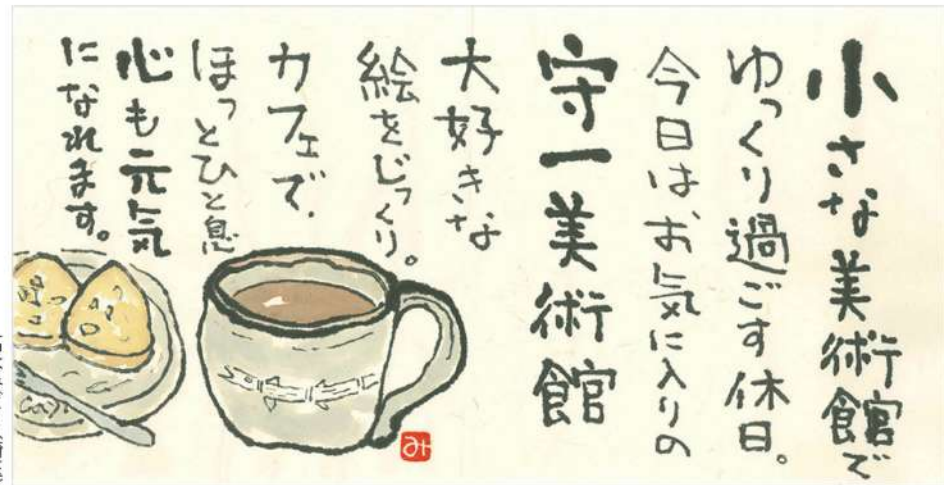 小さな美術館で
ゆっくり過ごす休日。
今日はお気に入りの
守一美術館
大好きな
絵をじっくり。
カフェで、
ほっとひと息
心も元気
になれます。
み